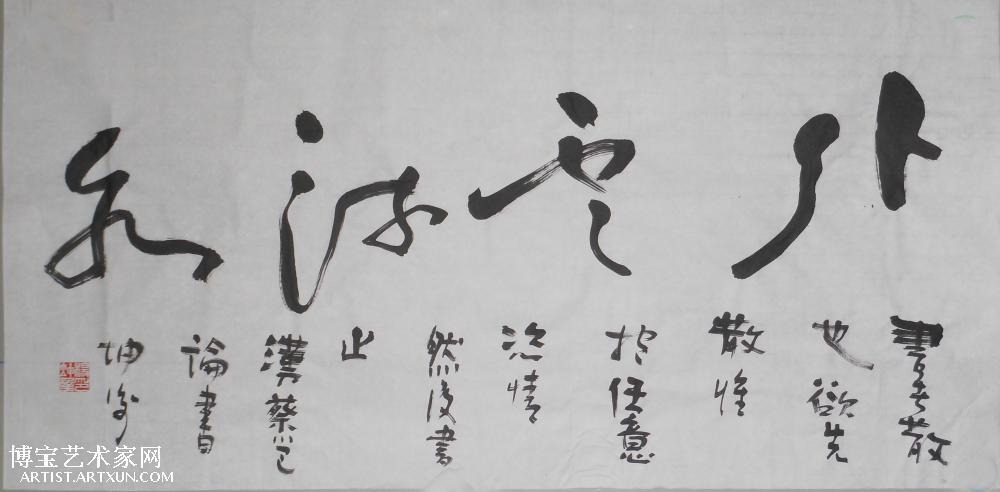 行云流水
書者散
也欲先
散
抱任意
恣情
然後書
漢蔡邕
論書
坤
博宝艺术家网
ARTIST.ARTXUN.COM